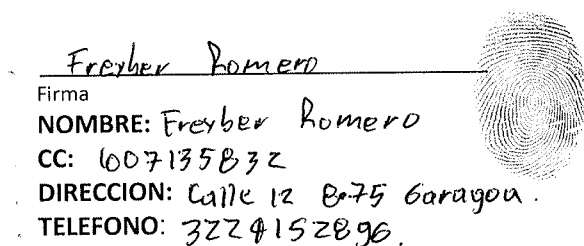 Freyber Romero
Firma
NOMBRE: Freyber Romero
CC: 1007135832
DIRECCION: Calle 12 8-75 Garagoa.
TELEFONO: 3224152896.